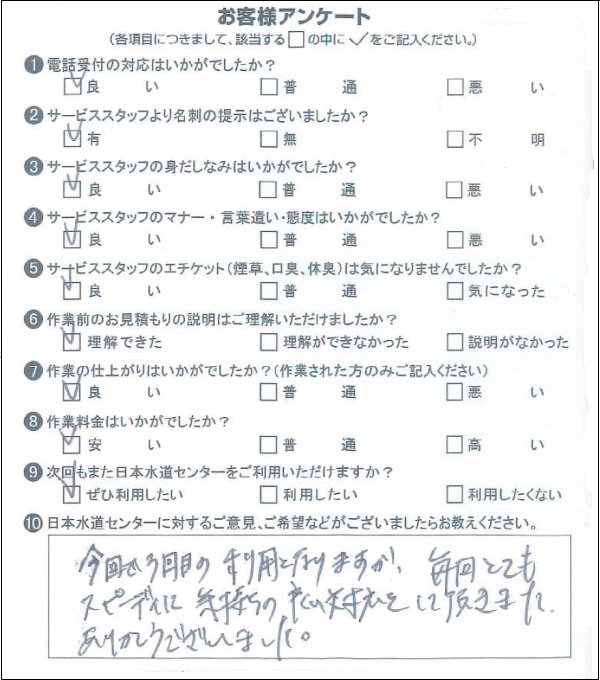 お客様アンケート
(各項目につきまして、該当する□の中に✓をご記入ください。)
❶電話受付の対応はいかがでしたか?
☑良い □普通 □悪い
❷サービススタッフより名刺の提示はございましたか?
☑有 □無 □不明
❸サービススタッフの身だしなみはいかがでしたか?
☑良い □普通 □悪い
❹サービススタッフのマナー・言葉遣い・態度はいかがでしたか?
☑良い □普通 □悪い
❺サービススタッフのエチケット(煙草、口臭、体臭)は気になりませんでしたか?
☑良い □普通 □気になった
❻作業前のお見積もりの説明はご理解いただけましたか?
☑理解できた □理解ができなかった □説明がなかった
❼作業の仕上がりはいかがでしたか?(作業された方のみご記入ください)
☑良い □普通 □悪い
❽作業料金はいかがでしたか?
☑安い □普通 □高い
❾次回もまた日本水道センターをご利用いただけますか?
☑ぜひ利用したい □利用したい □利用したくない
❿日本水道センターに対するご意見、ご希望などがございましたらお教えください。
今回で3回目の利用となりますが、毎回とても
スピーディに気持ちの対応をして頂きました。
ありがとうございました。